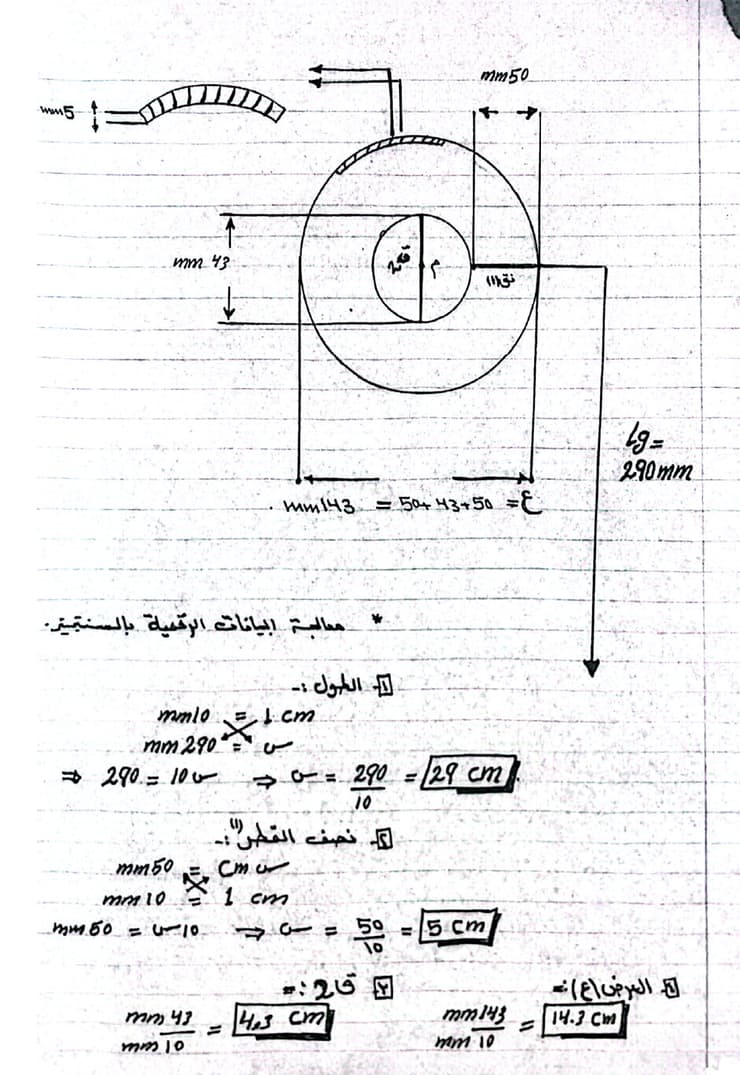 mm50
mm5
mm 43
قـ2
م
نق(1)
Lg=
290mm
ع= 50+43+50 = mm143 .
* معالجة البيانات الرقمية بالسنتيمتر.
1- الطول :-
mm10 = 1 cm
mm290 = س
⇒ 290 = 10س ⇒ س = 290/10 = 29 cm
2- نصف القطر(1) :-
mm50 = cm س
mm10 = 1 cm
mm50 = س10 ⇒ س = 50/10 = 5 cm
3 قـ2 :=
mm43/mm10 = 4,3 cm
العرض(ع) :=
mm143/mm10 = 14.3 cm